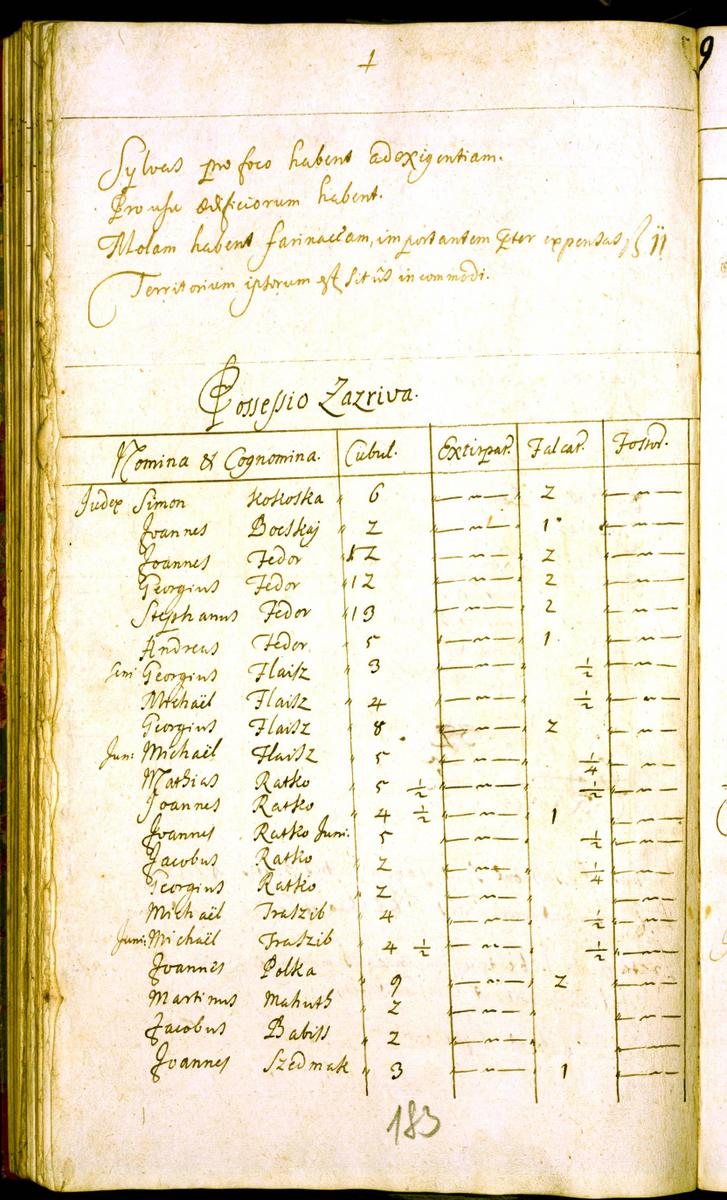 Sylvas pro foco habent ad exigentiam.
Pro usu ædificiorum habent.
Molam habent farinaceam, importantem expensas ıȷ
Territorium est sitûs incommodi.
Possessio Zazriva.
Nomina & Cognomina. Cubul. Extirpat. Falcat.
Judex Simon " 6 " — " — " 2 " — " —
Joannes Bocskaj " 2 " — " — " 1 " — " —
Joannes Fedor " 12 " — " — " 2 " — " —
Georgius Fedor " 12 " — " — " 2 " — " —
Stephanus Fedor " 13 " — " — " 2 " — " —
Andreas Fedor " 5 " — " — " 1 " — " —
Seni Georgius Flaisz " 3 " — " — " ½ " — " —
Michaël Flaisz " 4 " — " — " ½ " — " —
Georgius Flaisz " 8 " — " — " 2 " — " —
Juni: Michaël Flaisz " 5 " — " — " ¼ " — " —
Mathias Ratko " 5 ½ " — " — " ½ " — " —
Joannes Ratko " 4 ½ " — " — " 1 " — " —
Joannes Ratko Juni: " 5 " — " — " ½ " — " —
Jacobus Ratko " 2 " — " — " ¼ " — " —
Georgius Ratko " 2 " — " — " — " —
Michaël Traszib " 4 " — " — " ½ " — " —
Juni: Michaël Traszib " 4 ½ " — " — " ½ " — " —
Joannes Polka " 9 " — " — " 2 " — " —
Martinus Mahuth " 2 " — " — " — " —
Jacobus Babiss " 2 " — " — " — " —
Joannes Szedmak " 3 " — " — " 1 " — " —
183
9